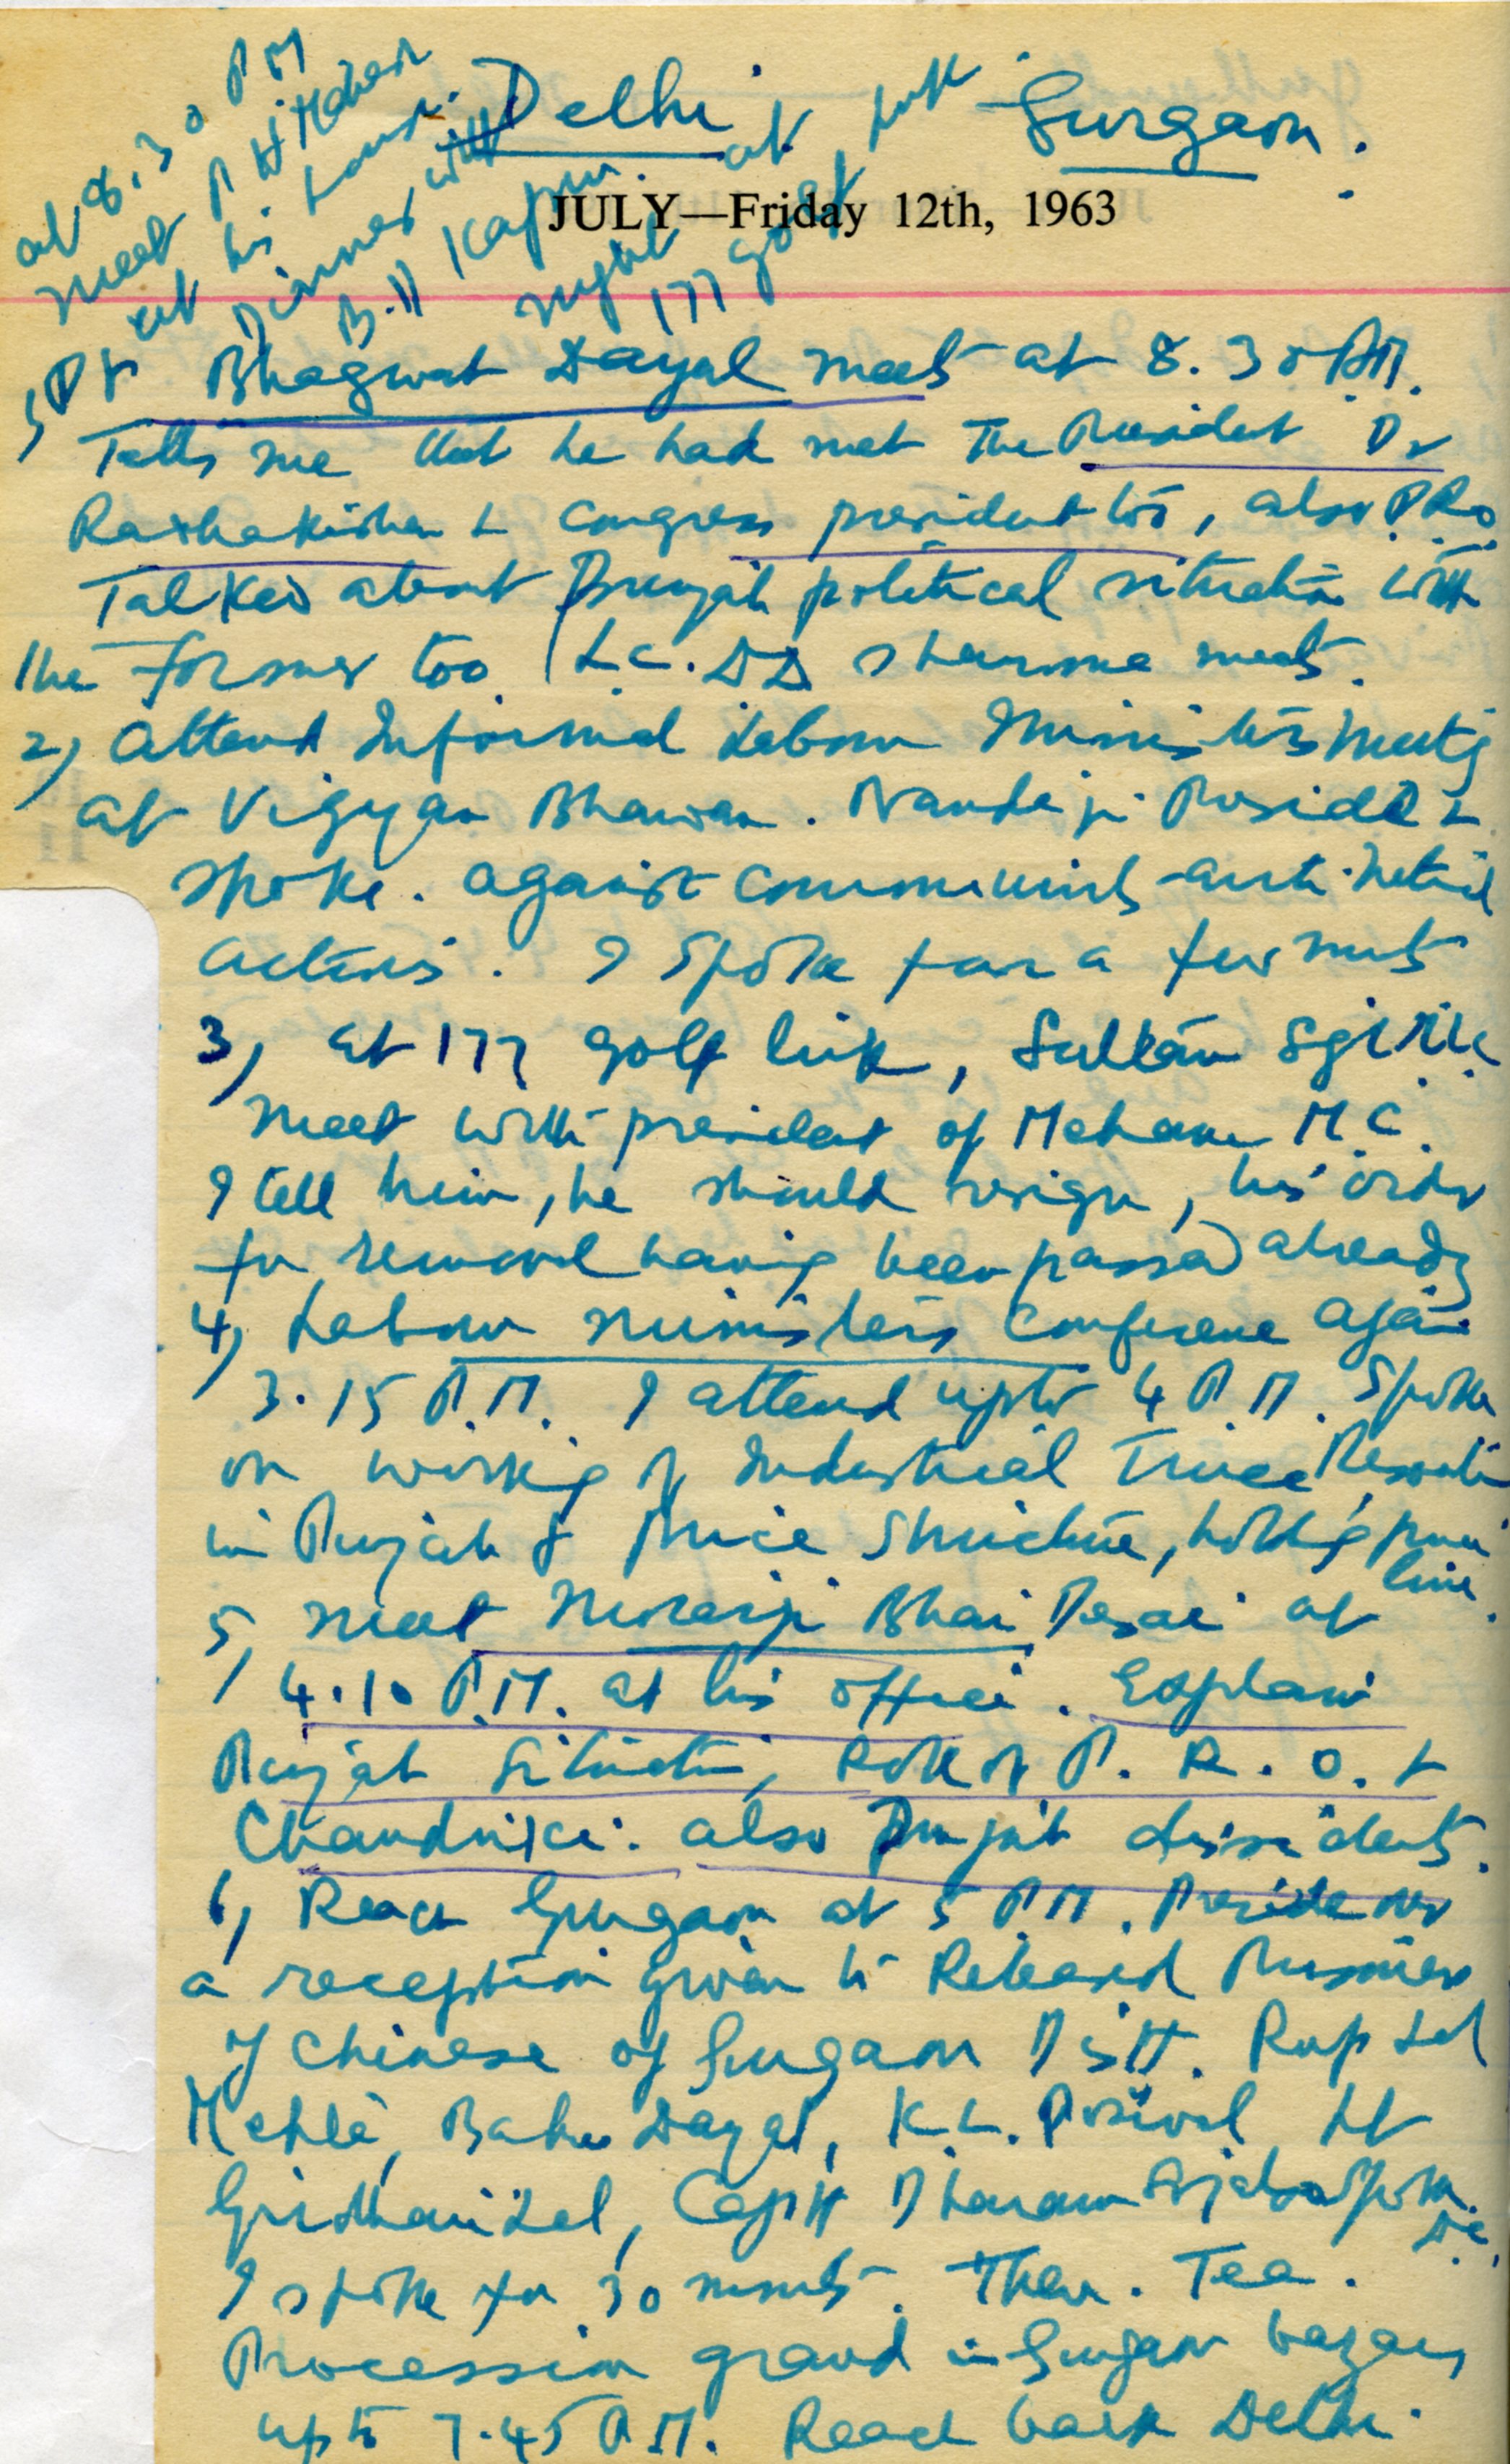 Delhi. Gurgaon.
JULY—Friday 12th, 1963
at 8.30 PM
meet
at his house.
Dinner with
Kapur. at
night
177 golf link
1) Pt Bhagwat Dayal meets at 8.30 AM.
Tells me that he had met The President Dr
Radhakishan & Congress president too, also P.R.O
Talked about Punjab political situation with
the former too. L.C. DD Sharma meets.
2) Attend Informal Labour Ministers meetg
at Vigyan Bhawan. Nandaji Presided &
spoke. against communists anti-
actions. I spoke for a few mts
3) at 177 golf link, Sultan Sgh
meet with president of Meham M.C.
I tell him, he should resign, his order
for removal having been passed already
4) Labour ministers Conference again
3.15 P.M. I attend upto 4 P.M. Spoke
on working of Industrial Truce Resoluti
in Punjab & Price Structure, holdig price
line.
5) meet Morarji Bhai Desai at
4.10 P.M. at his office. Explain
Punjab Situation, Role of P. R. O. &
Chandrika. also Punjab dissidents.
6) Reach Gurgaon at 5 P.M. Preside over
a reception given to Released Prisoners
of Chinese of Gurgaon Distt. Rup Lal
Mehta, Babu Dayal, K.L. Poswal, Lt
Girdharilal, Captt Dharam spoke.
D.C.
I spoke for 30 minuts. Then. Tea.
Procession grand in Gurgaon bazars
upto 7.45 P.M. Reach back Delhi.